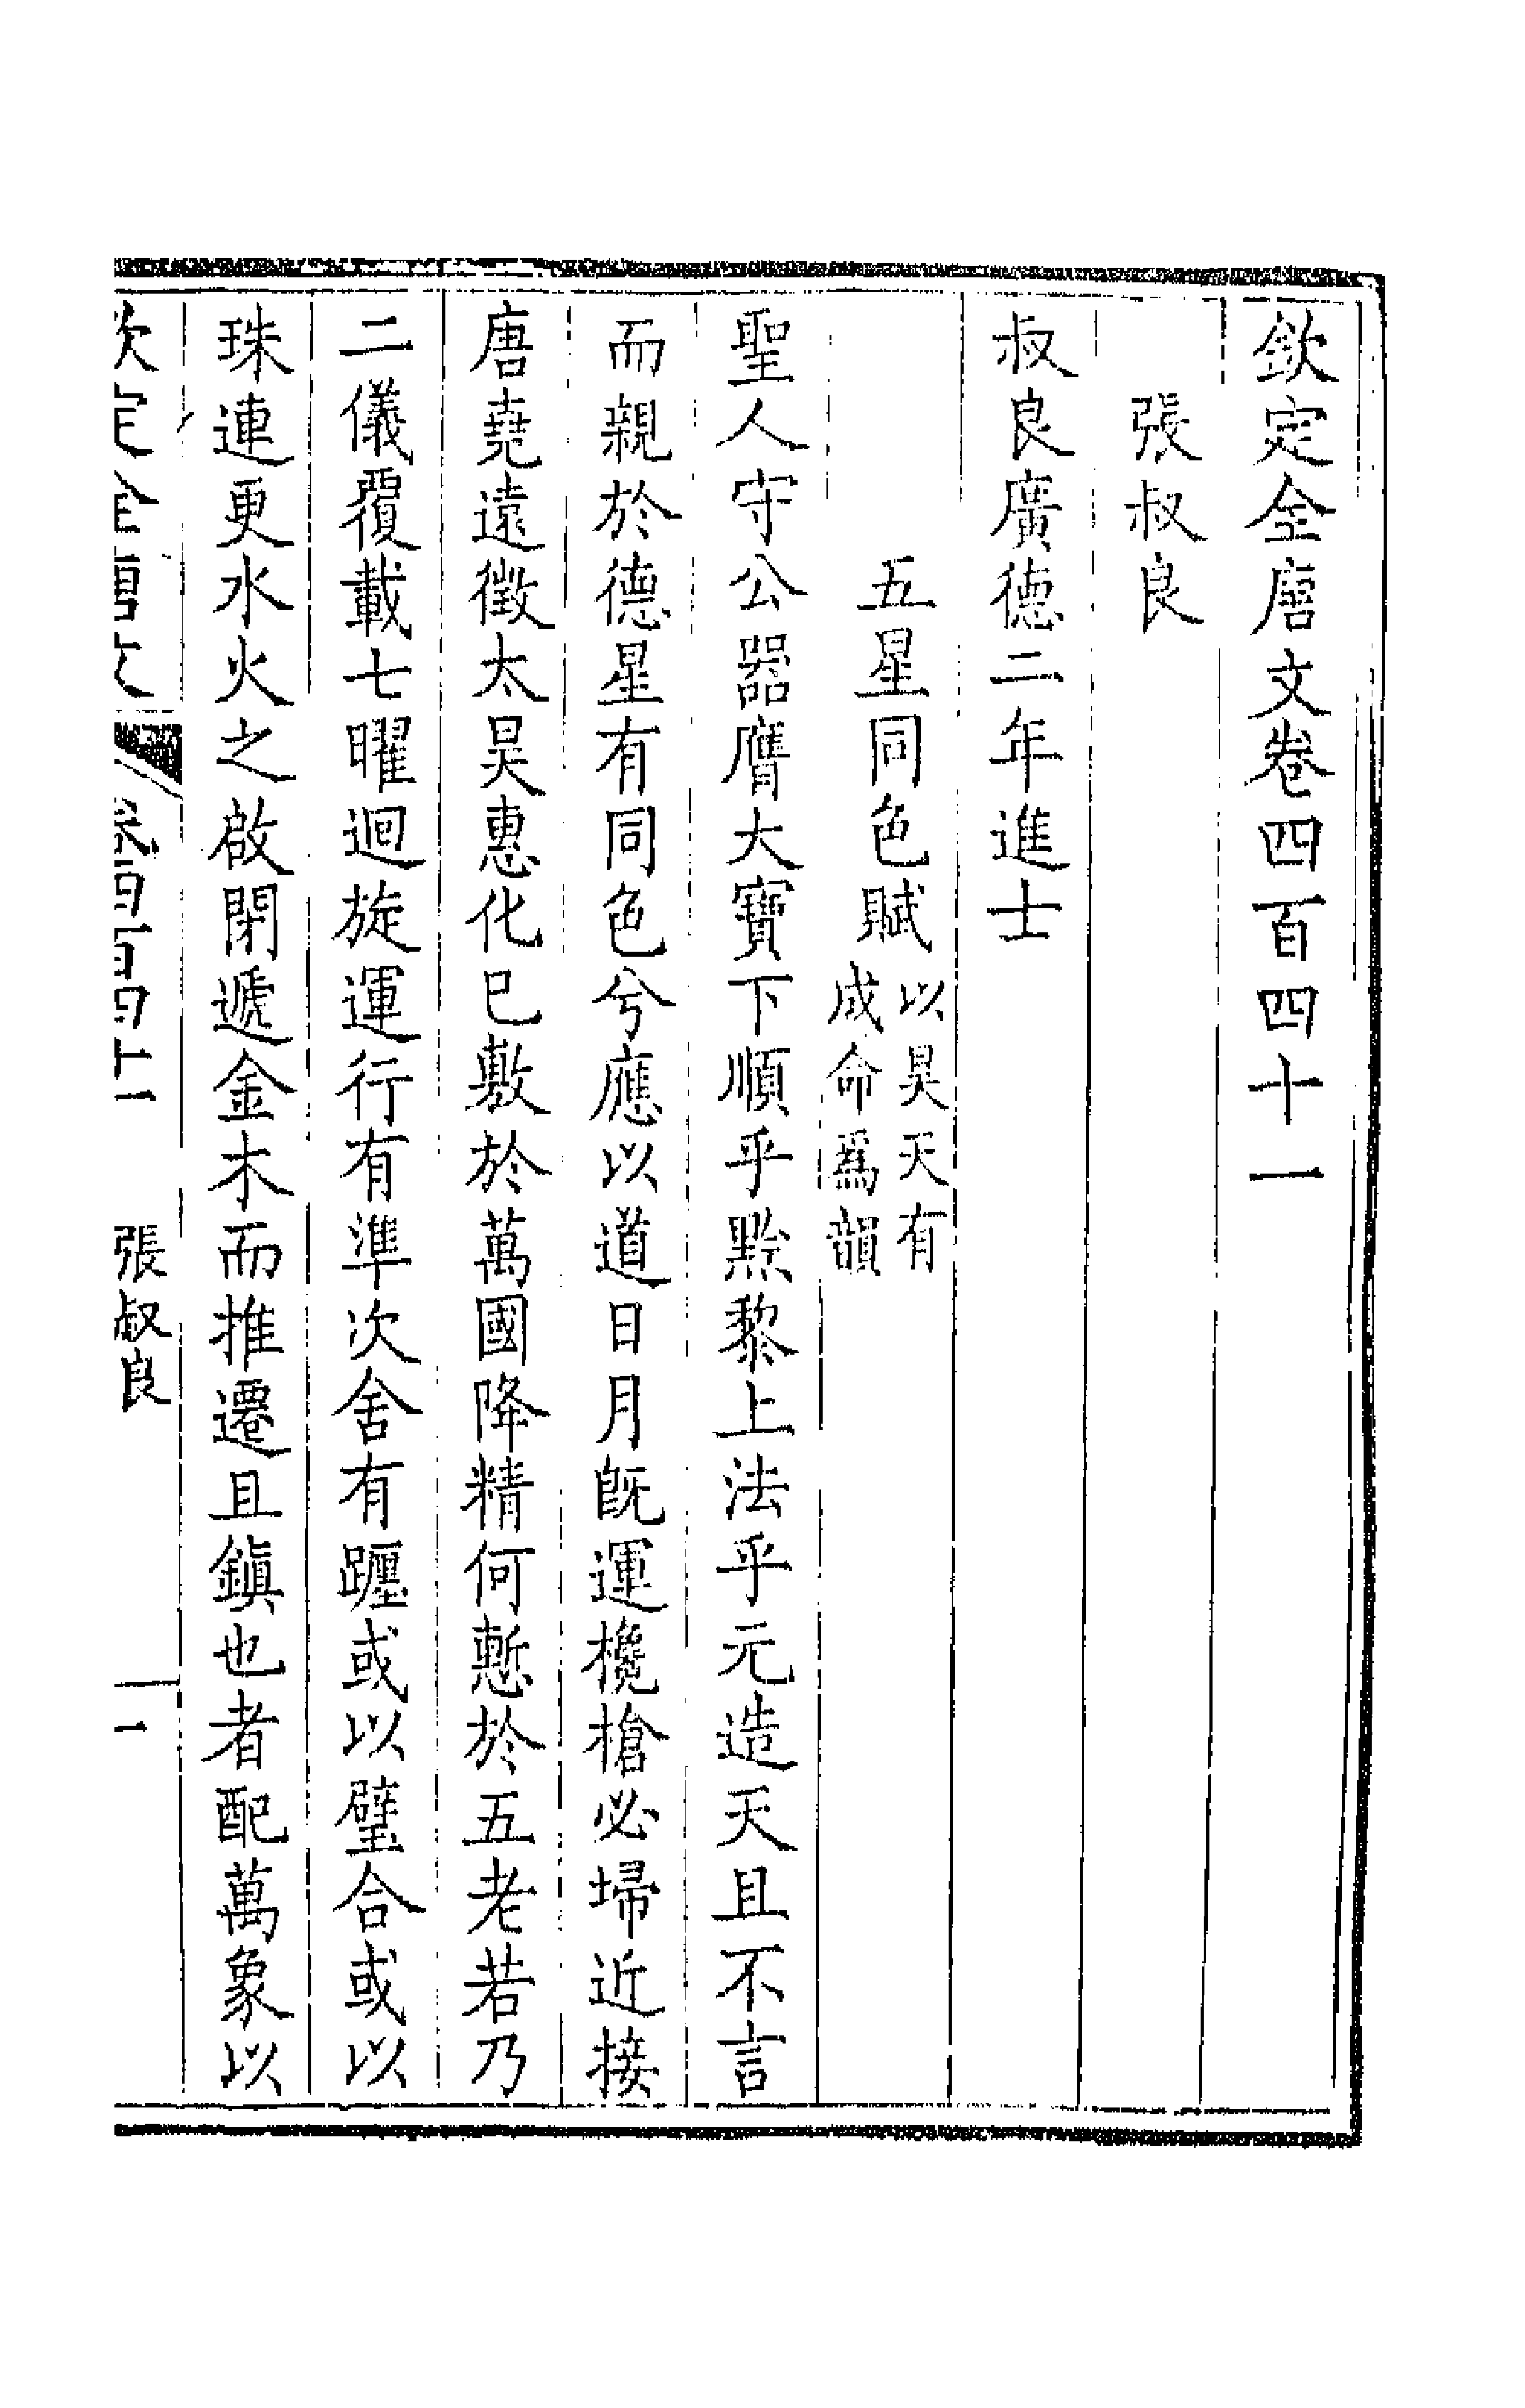 欽定全唐文卷四百四十一
張叔良
叔良廣德二年進士
五星同色賦以昊天有成命爲韻
聖人守公器膺大寶下順乎黔黎上法乎元造天且不言
而親於德星有同色兮應以道日月旣運欃槍必埽近接
唐堯遠徵太昊惠化已敷於萬國降精何慙於五老若乃
二儀覆載七曜迴旋運行有準次舍有躔或以璧合或以
珠連更水火之啟閉遞金木而推遷且鎮也者配萬象以
欽定全唐文 卷四百四十一 張叔良 一